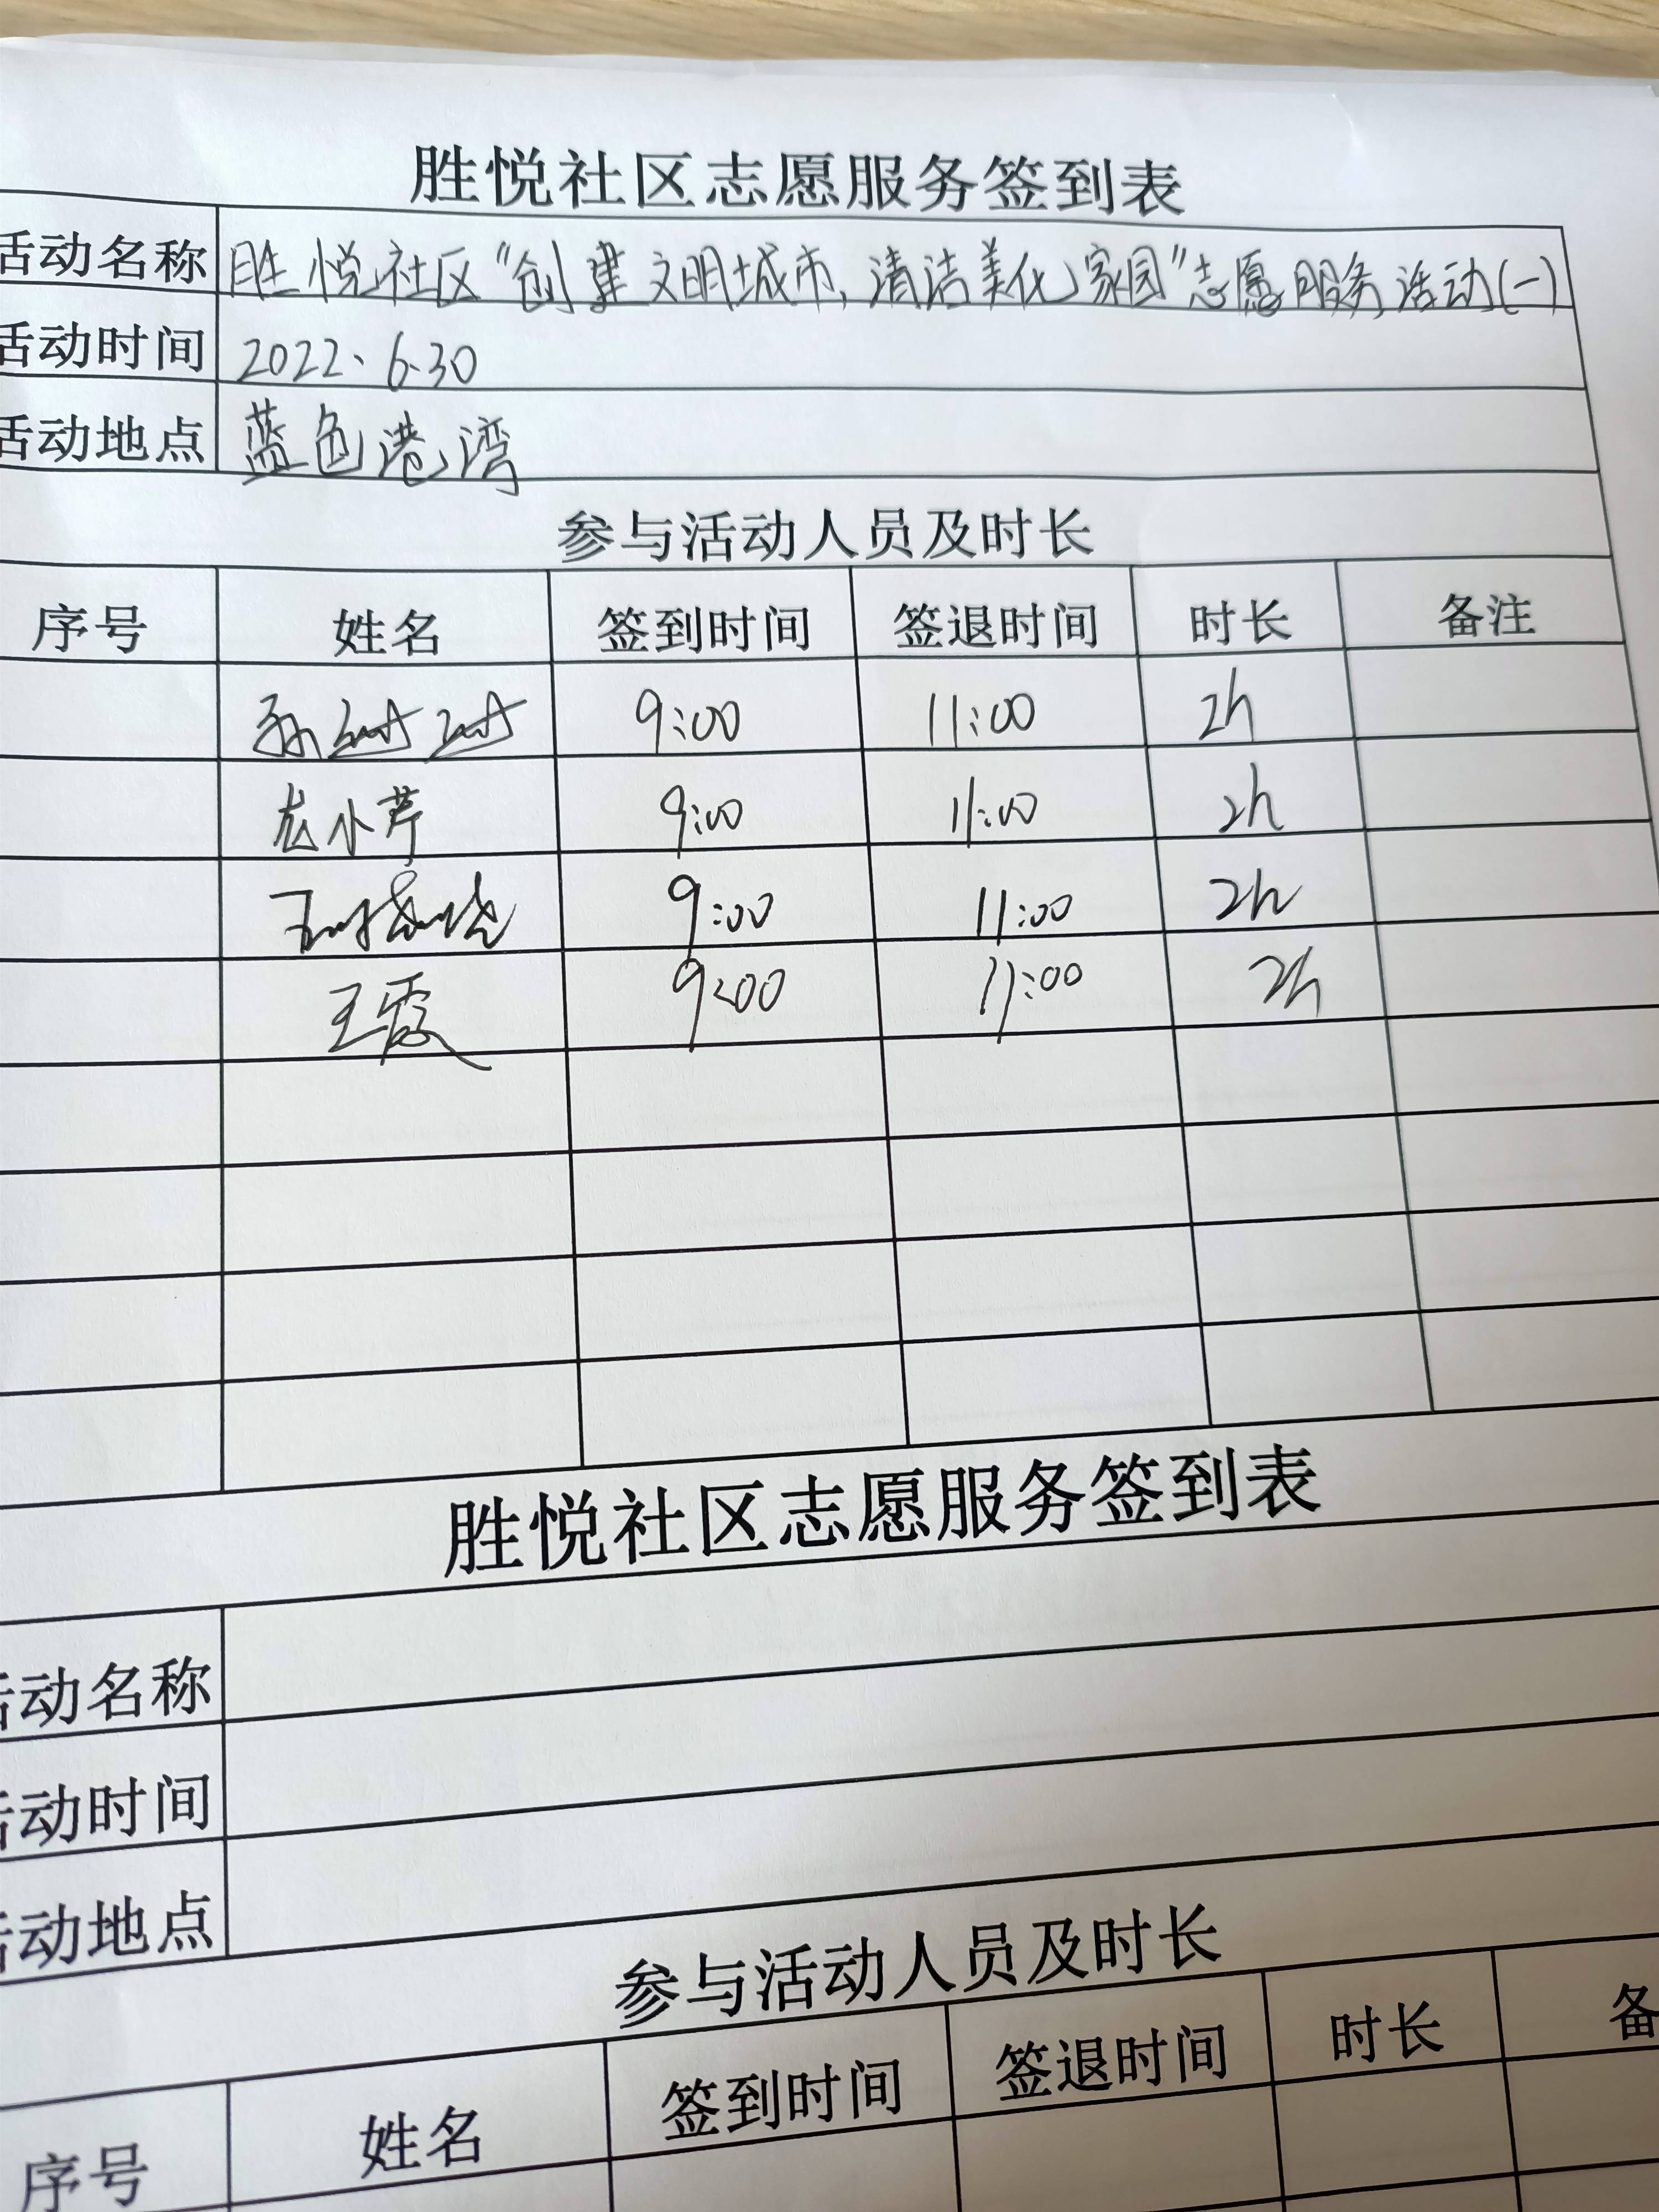 胜悦社区志愿服务签到表
活动名称 胜悦社区“创建文明城市,清洁美化家园”志愿服务活动(一)
活动时间 2022、6.30
活动地点 蓝色港湾
参与活动人员及时长
序号 姓名 签到时间 签退时间 时长 备注
9:00 11:00 2h
小芹 9:00 11:00 2h
9:00 11:00 2h
王霞 9:00 11:00 2h
胜悦社区志愿服务签到表
活动名称
活动时间
活动地点
参与活动人员及时长
序号 姓名 签到时间 签退时间 时长 备